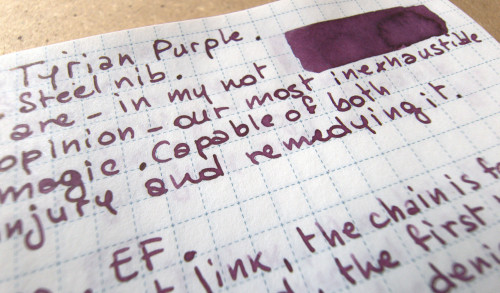 Tyrian Purple.
. Steel nib.
are - in my not
opinion - out most inexhaustible
magic. Capable of both
injury and remedying it.
EF.
link, the chain is
, the first
deni